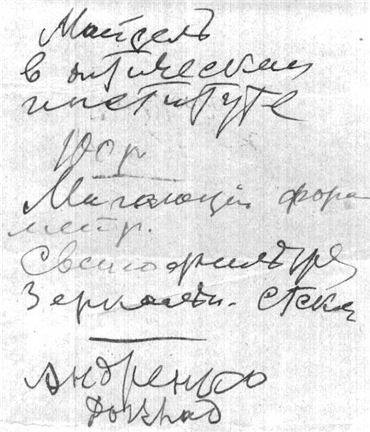 Майзель
в оптическом
институте
Юор
Мигающий фото
метр.
Светофильтры
Зеркальн. стекл
Андренко
Доклад